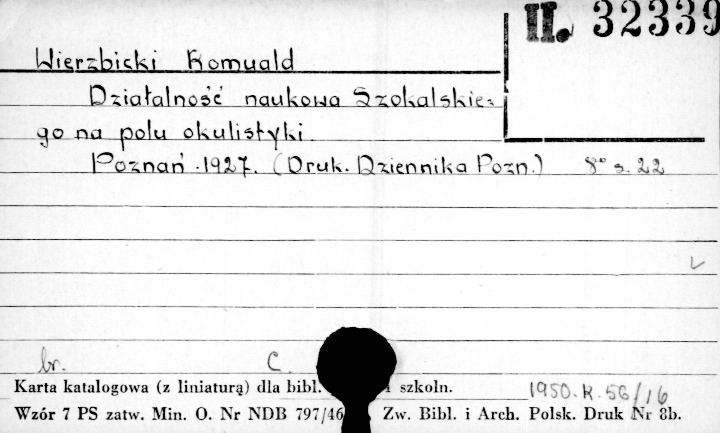 II. 32339
Wierzbicki Romuald
Działalność naukowa Szokalskie-
go na polu okulistyki.
Poznań. 1927. (Druk. Dziennika Pozn.) 8° s. 22
br. C.
Karta katalogowa (z liniaturą) dla bibl. szkoln. 1950.K.56/16
Wzór 7 PS zatw. Min. O. Nr NDB 797/46 Zw. Bibl. i Arch. Polsk. Druk Nr 8b.